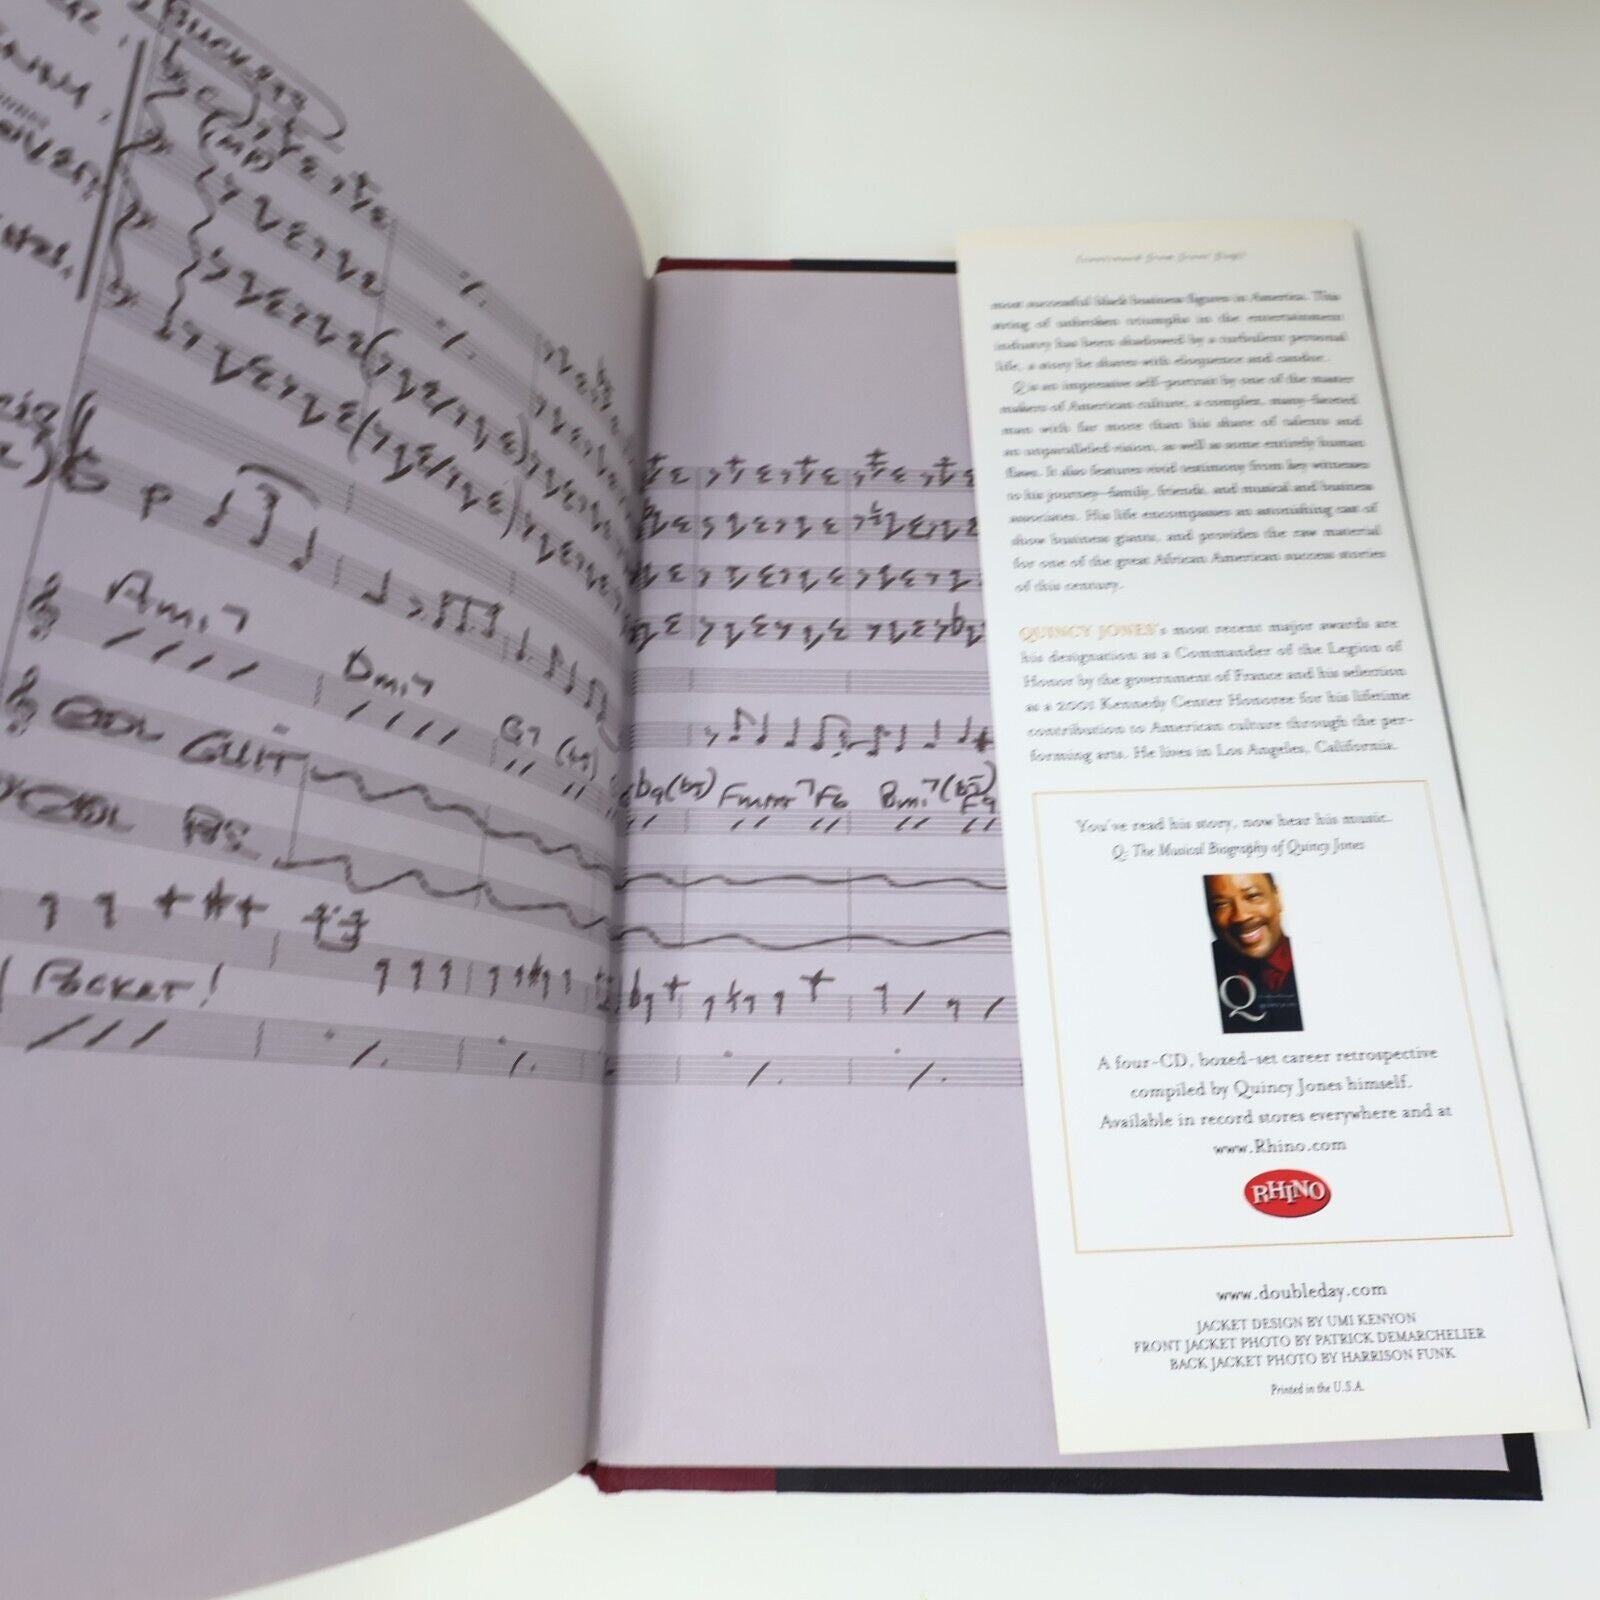 BUCKETS
(MP)
Ami7
Dmi7
G7 (b5)
GUIT
POCKET!
b9(b5) Fmin7 F6 Bmi7(b5)
(continued from front flap)
most successful black business figures in America. This
string of unbroken triumphs in the entertainment
industry has been shadowed by a turbulent personal
life, a story he shares with eloquence and candor.
Q is an impressive self-portrait by one of the master
makers of American culture, a complex, many-faceted
man with far more than his share of talents and
an unparalleled vision, as well as some entirely human
flaws. It also features vivid testimony from key witnesses
to his journey—family, friends, and musical and business
associates. His life encompasses an astonishing cast of
show business giants, and provides the raw material
for one of the great African American success stories
of this century.
QUINCY JONES's most recent major awards are
his designation as a Commander of the Legion of
Honor by the government of France and his selection
as a 2001 Kennedy Center Honoree for his lifetime
contribution to American culture through the per-
forming arts. He lives in Los Angeles, California.
You've read his story, now hear his music.
Q: The Musical Biography of Quincy Jones
Q
A four-CD, boxed-set career retrospective
compiled by Quincy Jones himself.
Available in record stores everywhere and at
www.Rhino.com
RHINO
www.doubleday.com
JACKET DESIGN BY UMI KENYON
FRONT JACKET PHOTO BY PATRICK DEMARCHELIER
BACK JACKET PHOTO BY HARRISON FUNK
Printed in the U.S.A.